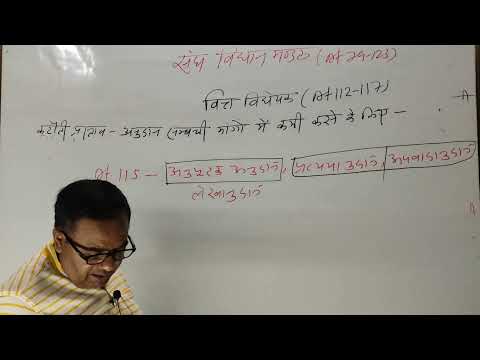 संघ विधान मण्डल (Art 79-123)
वित्त विधेयक (Art 112-117)
कटौती प्रस्ताव - अनुदान सम्बन्धी मांगो में कमी करने के लिए -
Art 115 - अनुपूरक अनुदान, प्रत्ययानुदान, अपवादानुदान
लेखानुदान